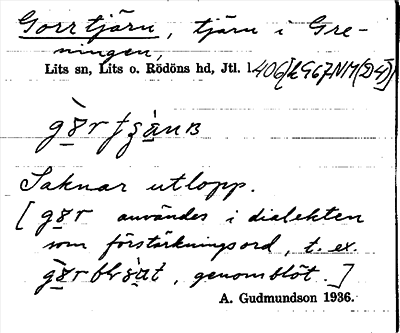 Gorrtjärn, tjärn i Gre-
ningen,
Lits sn, Lits o. Rödöns hd, Jtl. 1406 [k967NM(D4)]
Saknar utlopp.
[ användes i dialekten
som förstärkningsord, t. ex.
, genomblöt.]
A. Gudmundson 1936.